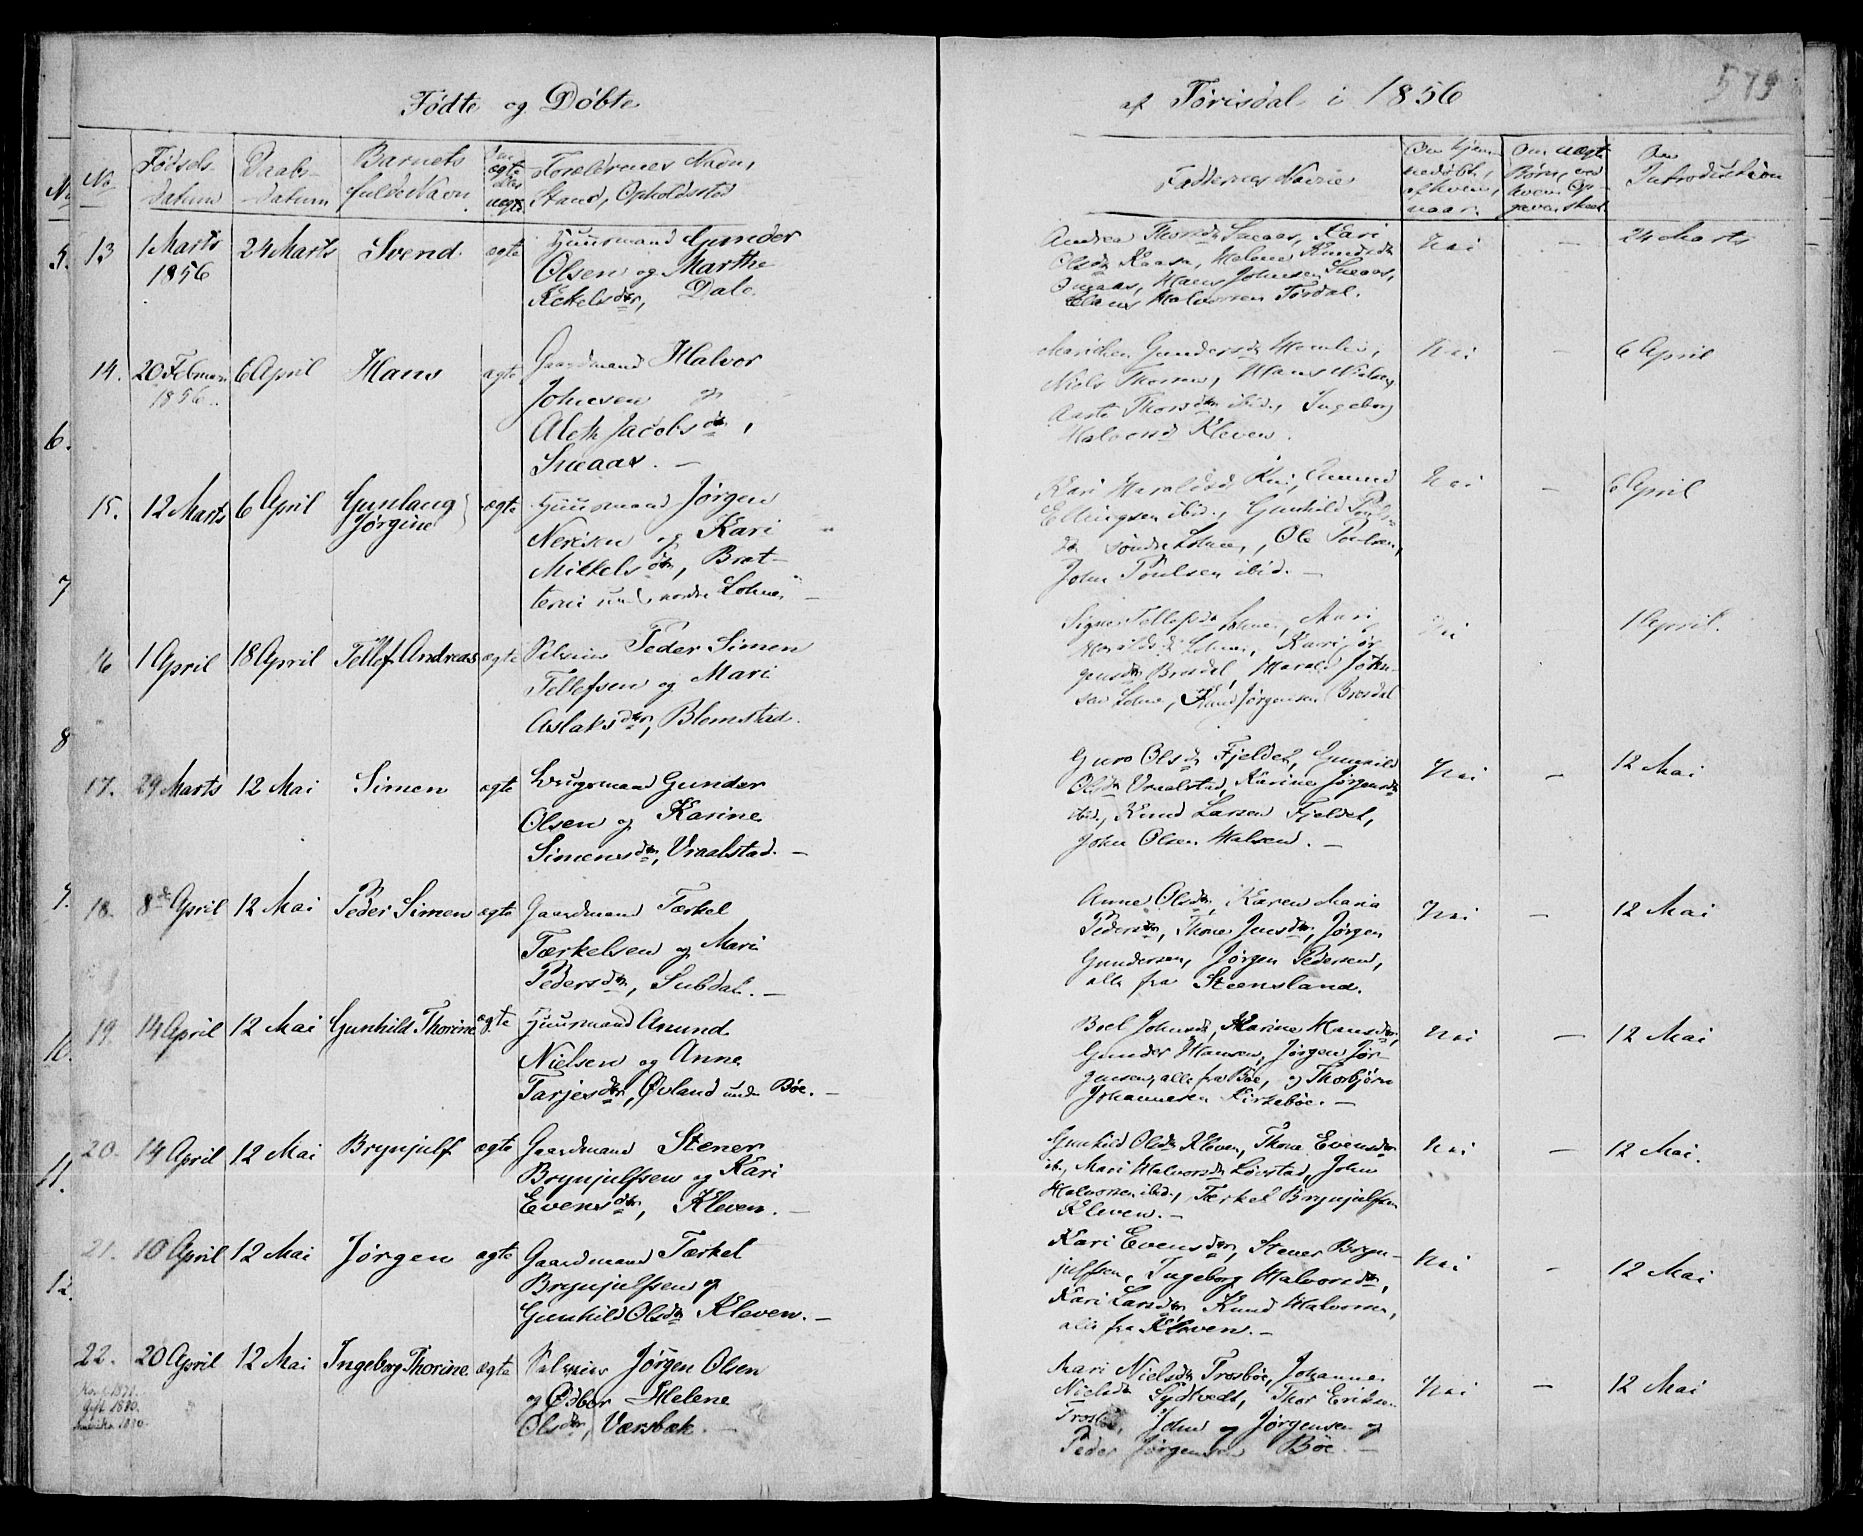 Fødte og Døbte
af Tørisdal i 1856
579
No
Fødsels-
Datum
Daabs-
Datum
Barnets
fulde Navn
ægte
eller
uægte
Forældrenes Navn,
Stand, Opholdssted
Faddernes Navne
Om hjem-
medøbt,
af hvem,
naar.
Om uægte
Børn, ved
hvem Op-
gaven skeet
Om
Introduction
13
1 Marts
1856
24 Marts
Svend
ægte
Huusmand Gunder
Olsen og Marthe
Kekelsdtr, Dale.
Andrea Thorsdtr Sneaas, Kari
Olsdtr Kaasa, Helene Knudsdtr
Sneaas, Hans Johnsen Sneaas,
Claus Halvorsen Tørdal.
Nei
—
24 Marts
14.
20 Februar
1856.
6 April
Hans
ægte
Gaardmand Halvor
Johnsen og
Aleth Jacobsdtr,
Sneaas. —
Marichen Gundersdtr
Niels Thorsen, Hans Nielsen
Aaste Thorsdtr ibid., Ingeborg
Halvorsd Kleven.
Nei
—
6 April
15.
12 Marts
6 April
Gunlaug
Jørgine
ægte
Huusmand Jørgen
Nerisen og Kari
Mikkelsdtr, Brat-
terni und. nordre Lohne. —
Kari Haraldsd Amund
Ellingsen ibid., Gunhild Pouls-
dtr søndre Lohne, Ole Poulsen,
John Poulsen ibid. —
Nei
—
6 April
16
1 April
18 April
Tellef Andreas
ægte
Selveier Peder Simen
Tellefsen og Mari
Aslaksdtr, Blomstad.
Signe Tellefsdtr Lohne, Mari
Haraldsd. Lohne, Kari Jør-
gensdtr Brosdal, Harald John-
sen Lohne, Knud Jørgensen Brosdal
Nei
1 April.
17.
29 Marts
12 Mai
Simen
ægte
Brugsmand Gunder
Olsen og Karine
Simensdtr, Vraalstad. —
Guro Olsdtr Fjeldet, Gunhild
Olsdtr Vraalstad, Karine Jørgensdtr
ibid., Knud Larsen Fjeldet,
John Olsen Halsen. —
Nei
—
12 Mai
18.
8de April
12 Mai
Peder Simen
ægte
Gaardmand Tærkel
Tærkelsen og Mari
Pedersdtr, Subdal. —
Anne Olsdtr, Karen Maria
Pedersdtr, Thone Jensdtr, Jørgen
Gundersen, Jørgen Pedersen,
alle fra Steensland.
Nei
—
12 Mai
19.
14 April
12 Mai
Gunhild Thorine
ægte
Huusmand Anund
Nielsen og Anne
Tarjesdtr, Øvland under Bøe. —
Boel Johnsd, Karine Hansdtr,
Gunder Hansen, Jørgen Jør-
gensen, alle fra Bøe, og Thorbjørn
Johannesen Kirkebøe. —
Nei
—
12 Mai
20.
14 April
12 Mai
Brynjulf
ægte
Gaardmand Stener
Brynjulfsen og Kari
Evensdtr, Kleven. —
Gunhild Olsdtr Kleven, Thone Evensdtr
ib., Mari Halvorsdtr Løvstad, John
Halvorsen ibid., Tærkel Brynjulfsen
Kleven. —
Nei
—
12 Mai.
21.
10 April
12 Mai
Jørgen
ægte
Gaardmand Tærkel
Brynjulfsen og
Gunhild Olsdtr Kleven. —
Kari Evensdtr, Stener Bryn-
julfsen, Ingeborg Halvorsdtr,
Kari Larsdtr, Knud Halvorsen,
alle fra Kleven. —
Nei
—
12 Mai
22.
20 April
12 Mai
Ingeborg Thorine
ægte
Selveier Jørgen Olsen
og Østber Helene
Olsdtr, Værsbak. —
Mari Nielsdtr Trosbøe, Johanne
Nielsdtr Sydtvedt, Thor Eriksen
Trosbøe, John og Jørgensen og
Peder Jørgensen Bøe. —
Nei
—
12 Mai
Konf. 1871.
gift 1880.
Amerika 1880.
5.
6.
7
8
9.
10.
11.
12.